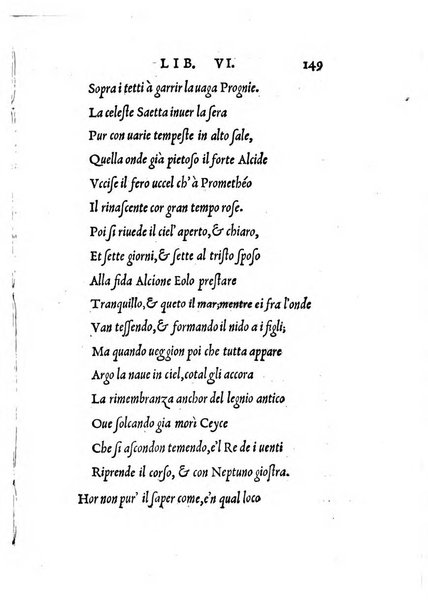 LIB. VI. 149
Sopra i tetti à garrir la uaga Prognie.
La celeſte Saetta inuer la ſera
Pur con uarie tempeſte in alto ſale,
Quella onde già pietoſo il forte Alcide
Vcciſe il fero uccel ch'à Promethéo
Il rinaſcente cor gran tempo roſe.
Poi ſi riuede il ciel' aperto, & chiaro,
Et ſette giorni, & ſette al triſto ſpoſo
Alla fida Alcione Eolo preſtare
Tranquillo, & queto il mar, mentre ei fra l'onde
Van teſſendo, & formando il nido a i figli;
Ma quando ueggion poi che tutta appare
Argo la naue in ciel, cotal gli accora
La rimembranza anchor del legnio antico
Oue ſolcando gia morì Ceyce
Che ſi aſcondon temendo, e'l Re de i uenti
Riprende il corſo, & con Neptuno gioſtra.
Hor non pur' il ſaper come, e'n qual loco